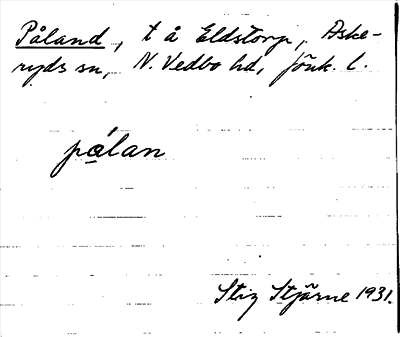 Påland, t å Eldstorp, Aske-
ryds sn, N. Vedbo hd, Jönk. l.
pålan
Stig Stjärne 1931.